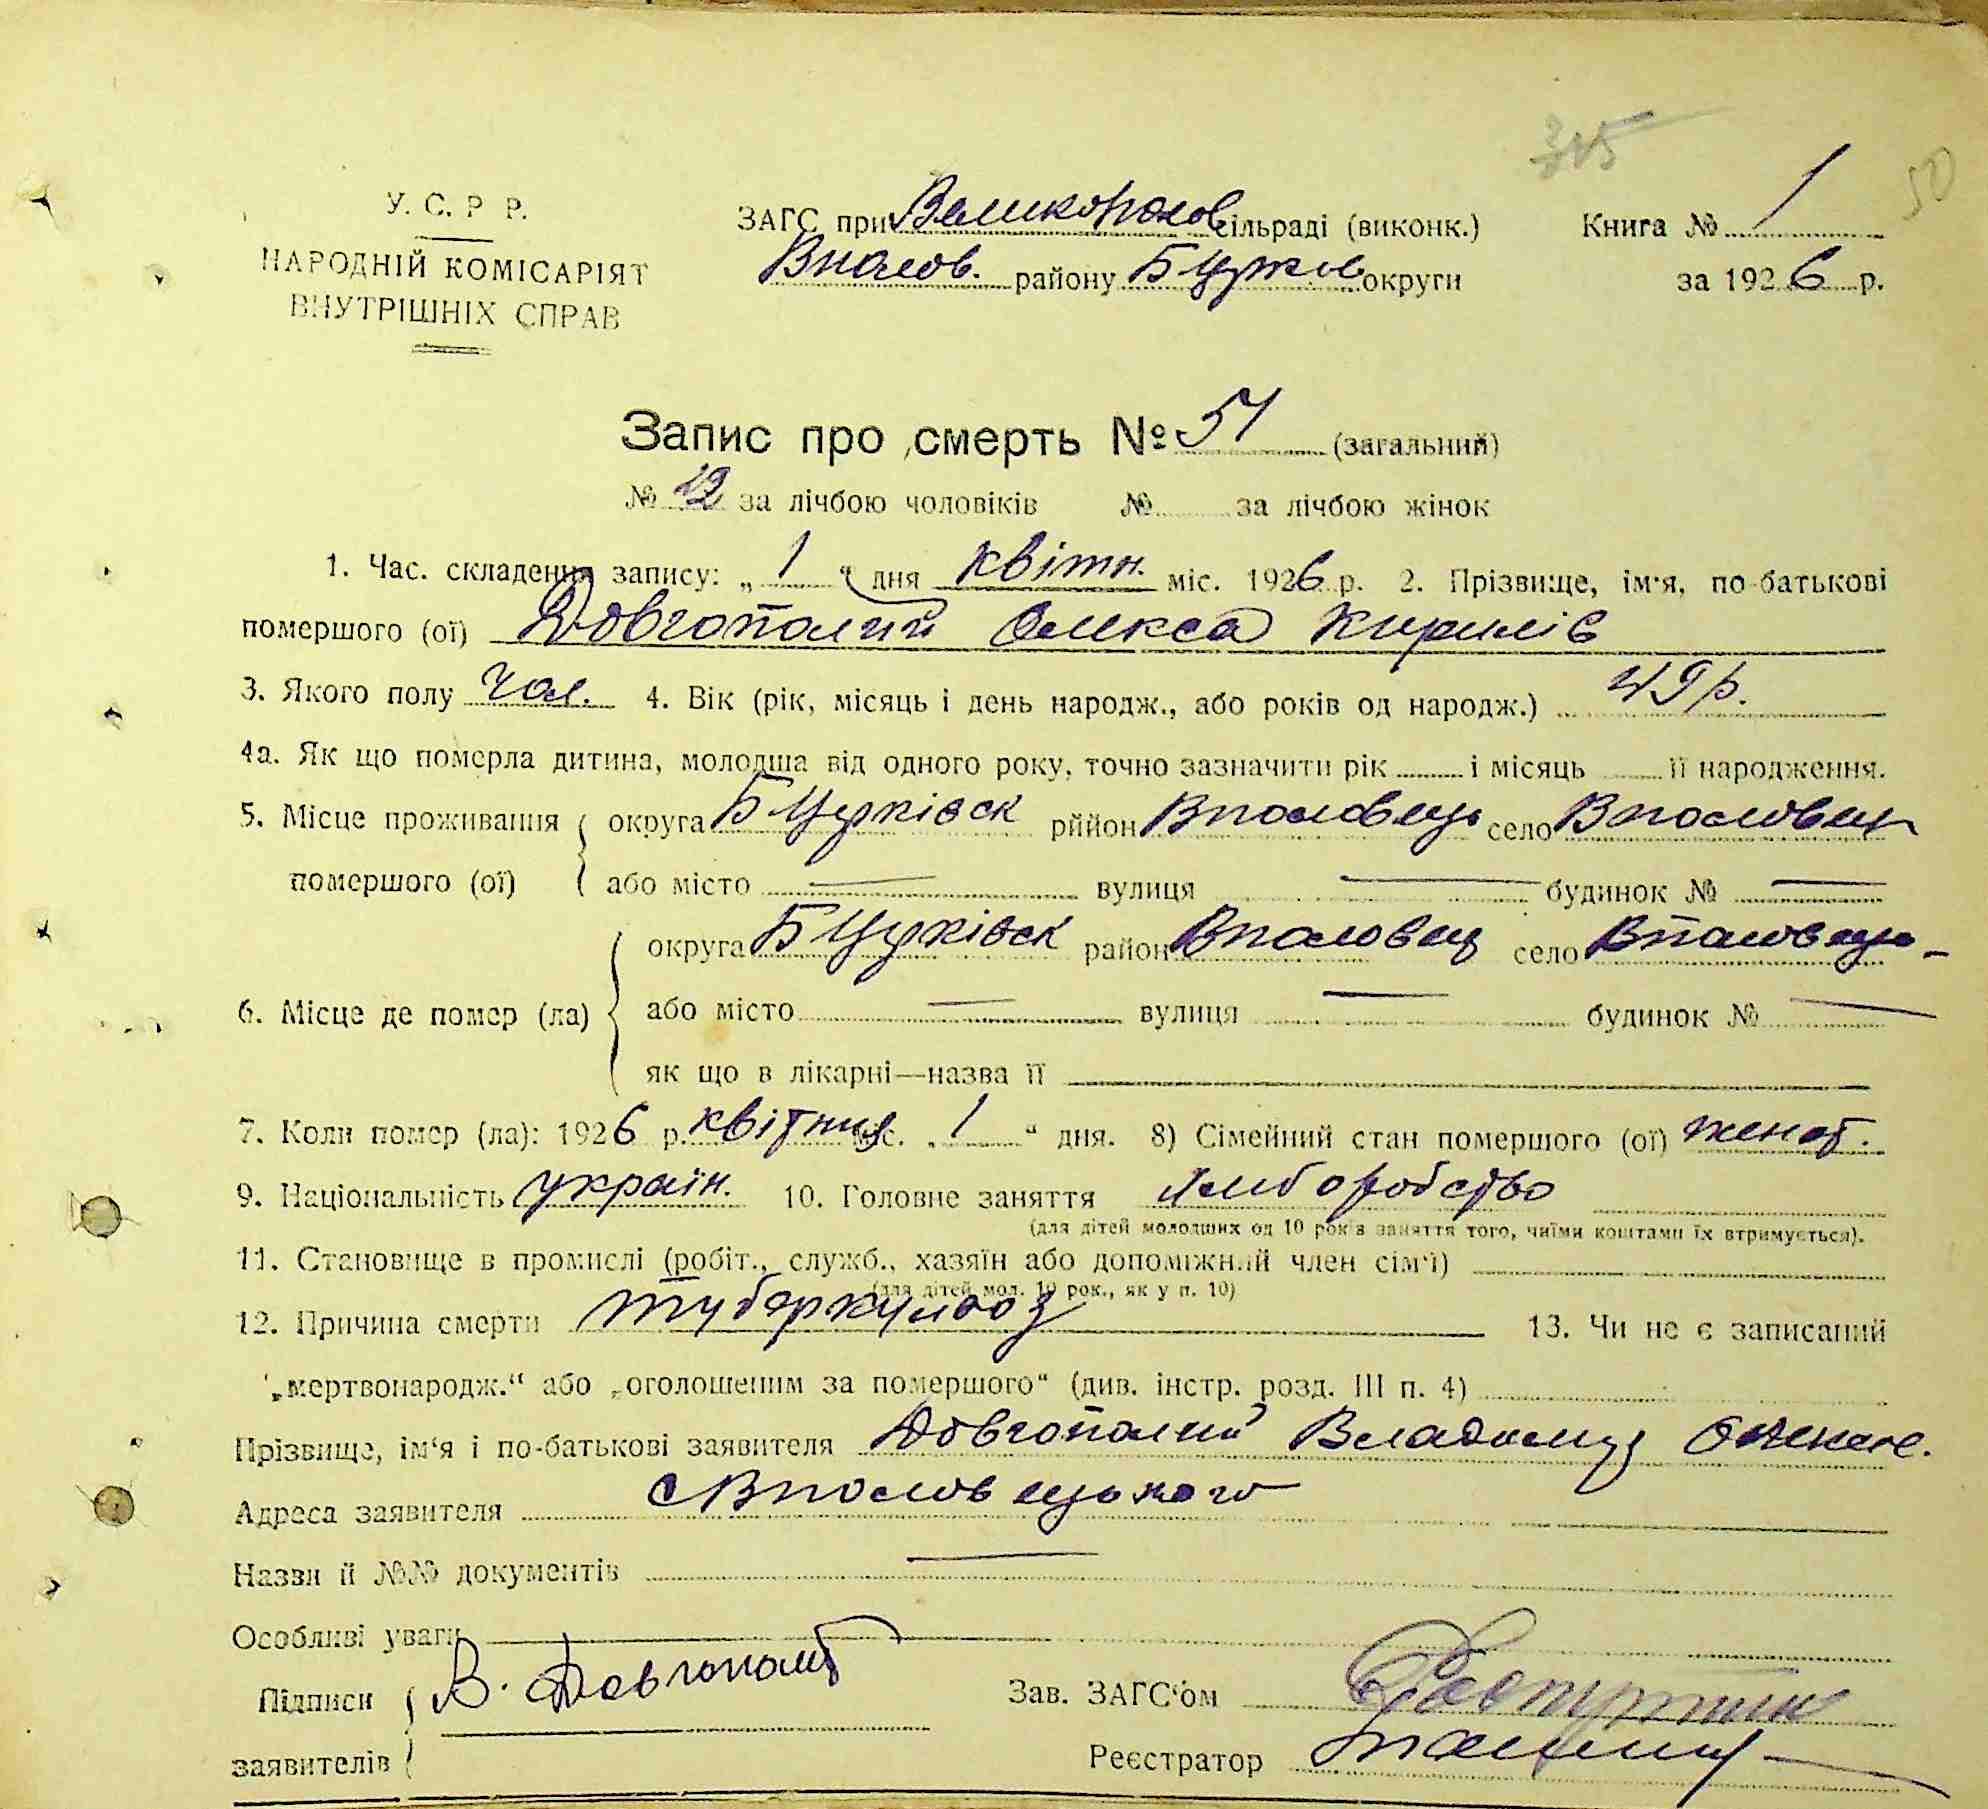 315
50
У. С. Р Р.
НАРОДНІЙ КОМІСАРІЯТ
ВНУТРІШНІХ СПРАВ
ЗАГС при Великополов сільраді (виконк.) Книга № 1
Вполов. району БЦерков округи за 1926 р.
Запис про смерть № 51 (загальний)
№ 12 за лічбою чоловіків № за лічбою жінок
1. Час. складення запису: „1“ дня квітн. міс. 1926 р. 2. Прізвище, ім'я, по-батькові
помершого (ої) Довгополий Олекса Кирилів
3. Якого полу чол. 4. Вік (рік, місяць і день народж., або років од народж.) 49 р.
4а. Як що померла дитина, молодша від одного року, точно зазначити рік і місяць її народження.
5. Місце проживання округа БЦерківск рййон Вполовець село Вполовець
помершого (ої) або місто — вулиця — будинок № —
округа БЦерківск район Вполовец село Вполовець
6. Місце де помер (ла) або місто — вулиця — будинок № —
як що в лікарні—назва її
7. Коли помер (ла): 1926 р. квітня міс. „1“ дня. 8) Сімейний стан помершого (ої) женат.
9. Національність україн. 10. Головне заняття хліборобство
(для дітей молодших од 10 років заняття того, чиїми коштами їх втримується).
11. Становище в промислі (робіт., служб., хазяїн або допоміжний член сім'ї)
(для дітей мол. 10 рок., як у п. 10)
12. Причина смерти туберкульоз 13. Чи не є записаний
„мертвонародж.“ або „оголошеним за помершого“ (див. інстр. розд. III п. 4)
Прізвище, ім'я і по-батькові заявителя Довгополий Владимир
Адреса заявителя с Вполовецького
Назви й №№ документів —
Особливі уваги
Підписи В. Довгопол Зав. ЗАГС'ом
заявителів Реєстратор